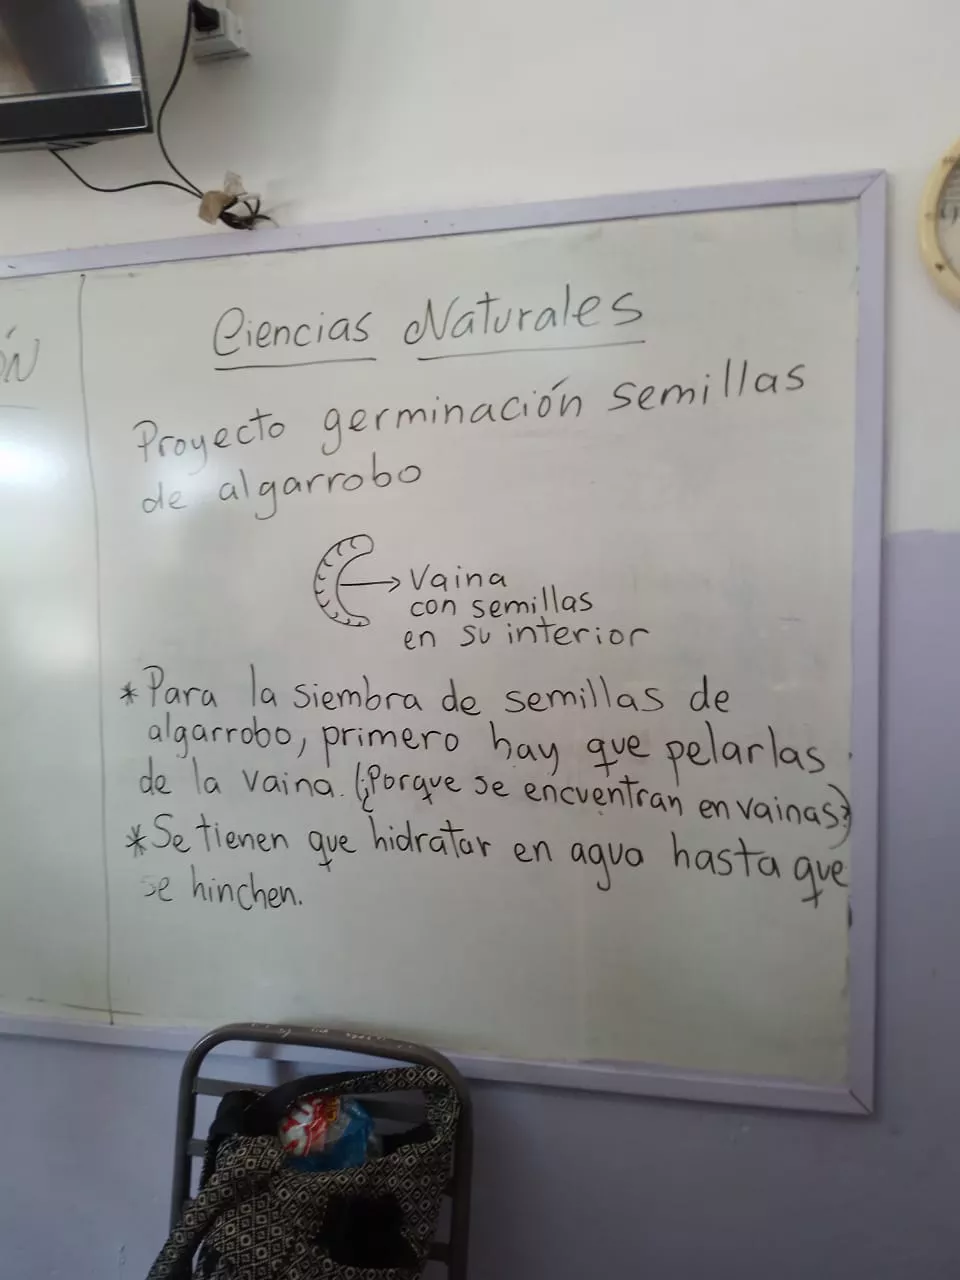 ÓN
Ciencias Naturales
Proyecto germinación semillas
de algarrobo
Vaina
con semillas
en su interior
*Para la siembra de semillas de
algarrobo, primero hay que pelarlas
de la vaina. (¿Porque se encuentran en vainas?)
*Se tienen que hidratar en agua hasta que
se hinchen.